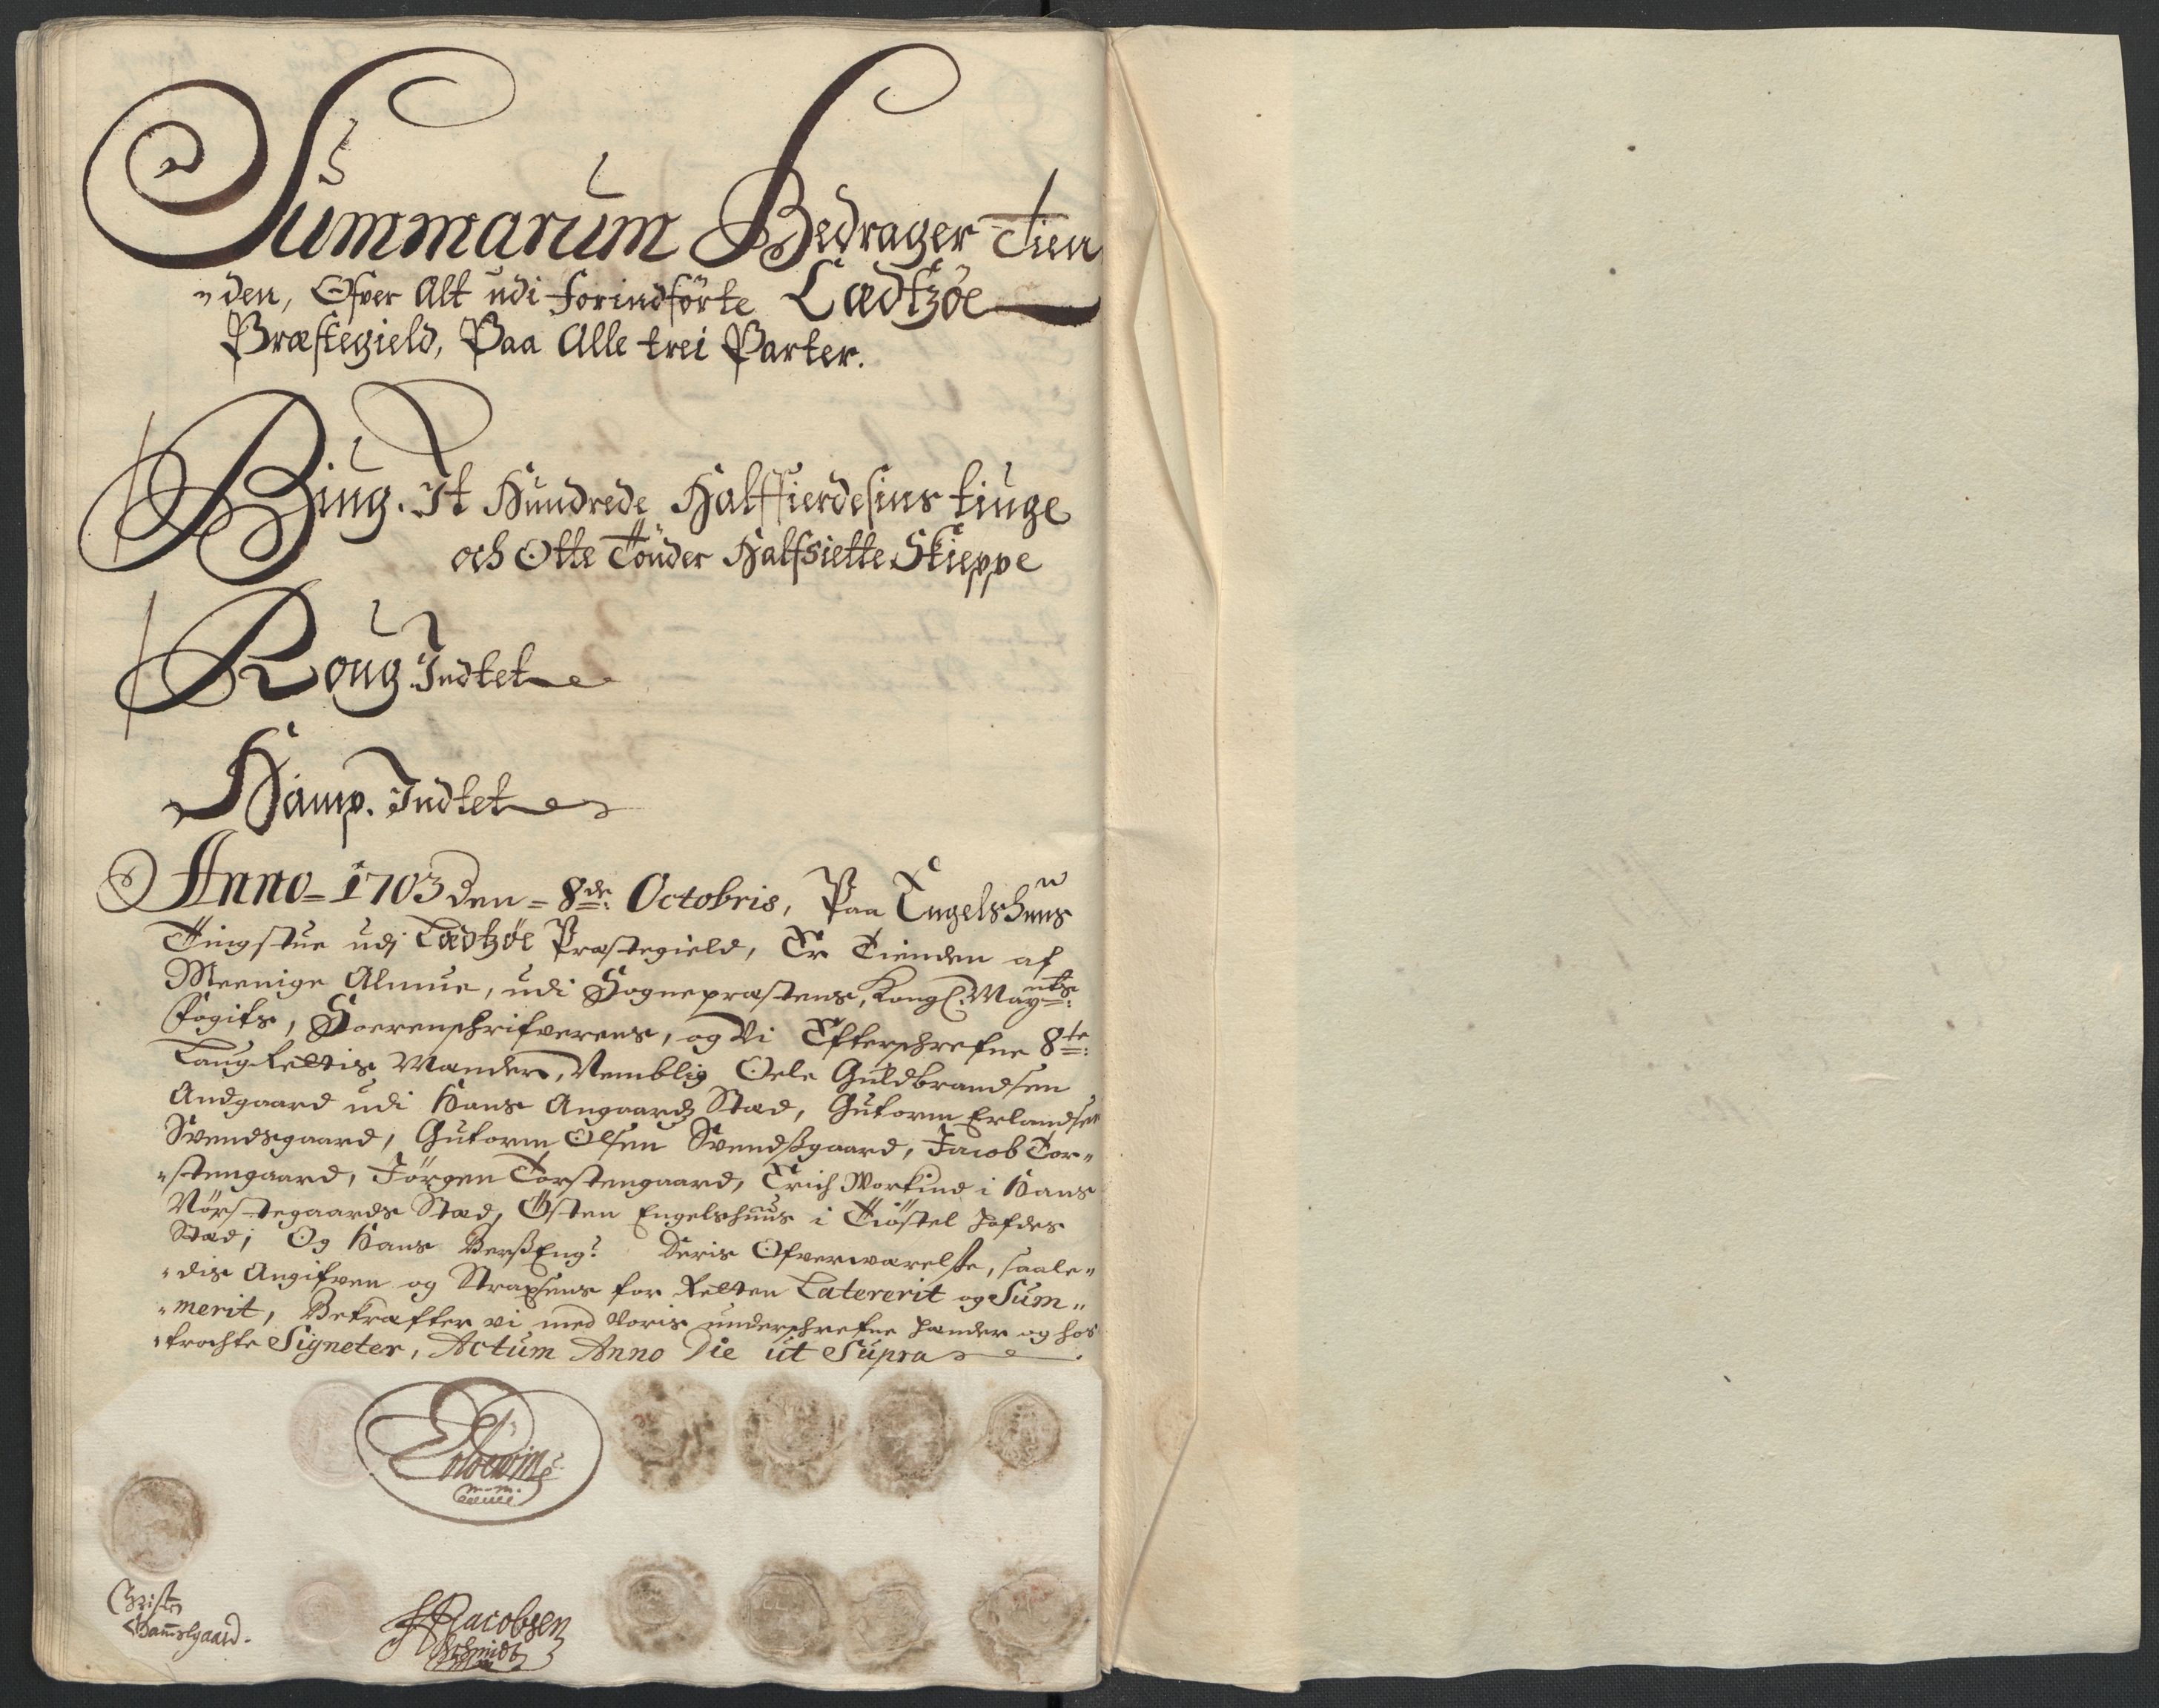 Summarum Bedrager Tien
"den, Ofver Alt udi forindförte Lædtzöe
Præstegield, Paa Alle trei Parter.
Biug. It Hundrede Halffierdesins tiuge
och Otte Tönder Halfsiette Skieppe
Roug Indtet
Hamp. Indtet
Anno = 1703 den = 8de: Octobris, Paa Engelshuus
Tingstue udj Lædtzöe Præstegield, Er Tienden af
Meenige Almue, udi Sognepræstens, Kongl: Mayts:
Fogits, Soerenschrifverens, og Vi Efterschrefne 8te:
Laug Rettis Mænder, Nemblig Oele Guldbrandsen
Andgaard udi Hans Angaardz Stæd, Gutorm Erlandsen
Svendsgaard, Gutorm Olsen Svendßgaard, Jacob Tor-
"stengaard, Jörgen Torstengaard, Erich Morkind i Hans
Nörstegaards Stæd, Östen Engelshuus i Tiöstel Hofdes
Stæd; Og Hans BersEng: Deris Ofverwærelse, saale"
"dis Angifven og Strax hens for Retten Latererit og Sum"
"merit, Bekræfter vi med Voris underschrefne Hænder og hos
"trøchte Signeter, Actum Anno Die ut Supra
m-m.
Christen
Bamslgaard.
Jacobsen
Schmidt